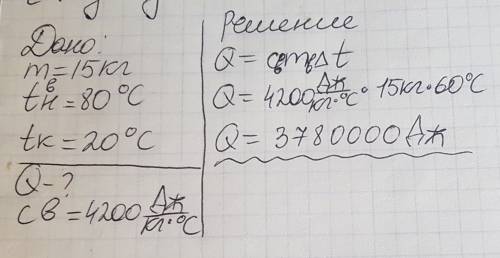 Дано:
m=15кг
tнв=80°C
tк=20°C
Q-?
cв=4200 Дж/кг·°C
Решение
Q= cвmвΔt
Q=4200 Дж/кг·°C · 15кг·60°C
Q= 3780000 Дж